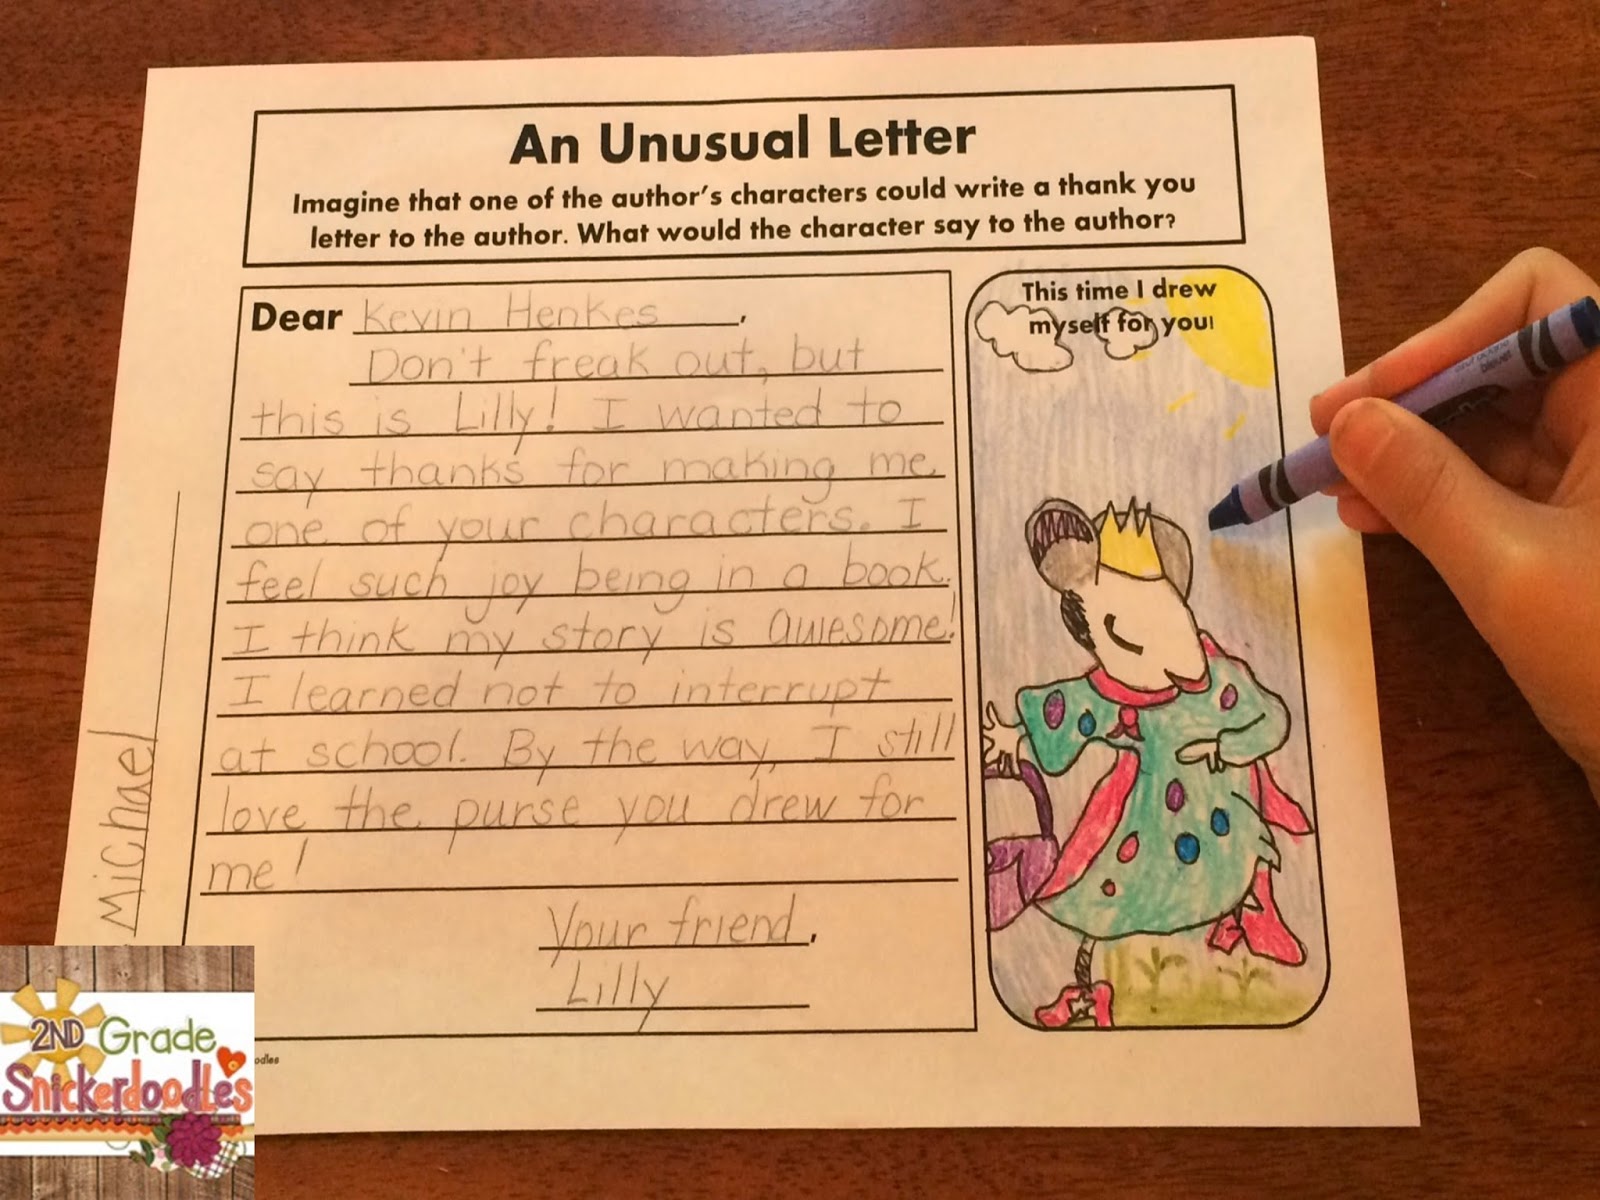 An Unusual Letter
Imagine that one of the author's characters could write a thank you
letter to the author. What would the character say to the author?
Dear Kevin Henkes,
Don't freak out, but
this is Lilly! I wanted to
say thanks for making me
one of your characters. I
feel such joy being in a book.
I think my story is awesome!
I learned not to interrupt
at school. By the way, I still
love the purse you drew for
me!
Your friend,
Lilly
This time I drew
myself for you!
Michael
2ND Grade
Snickerdoodles
oodles